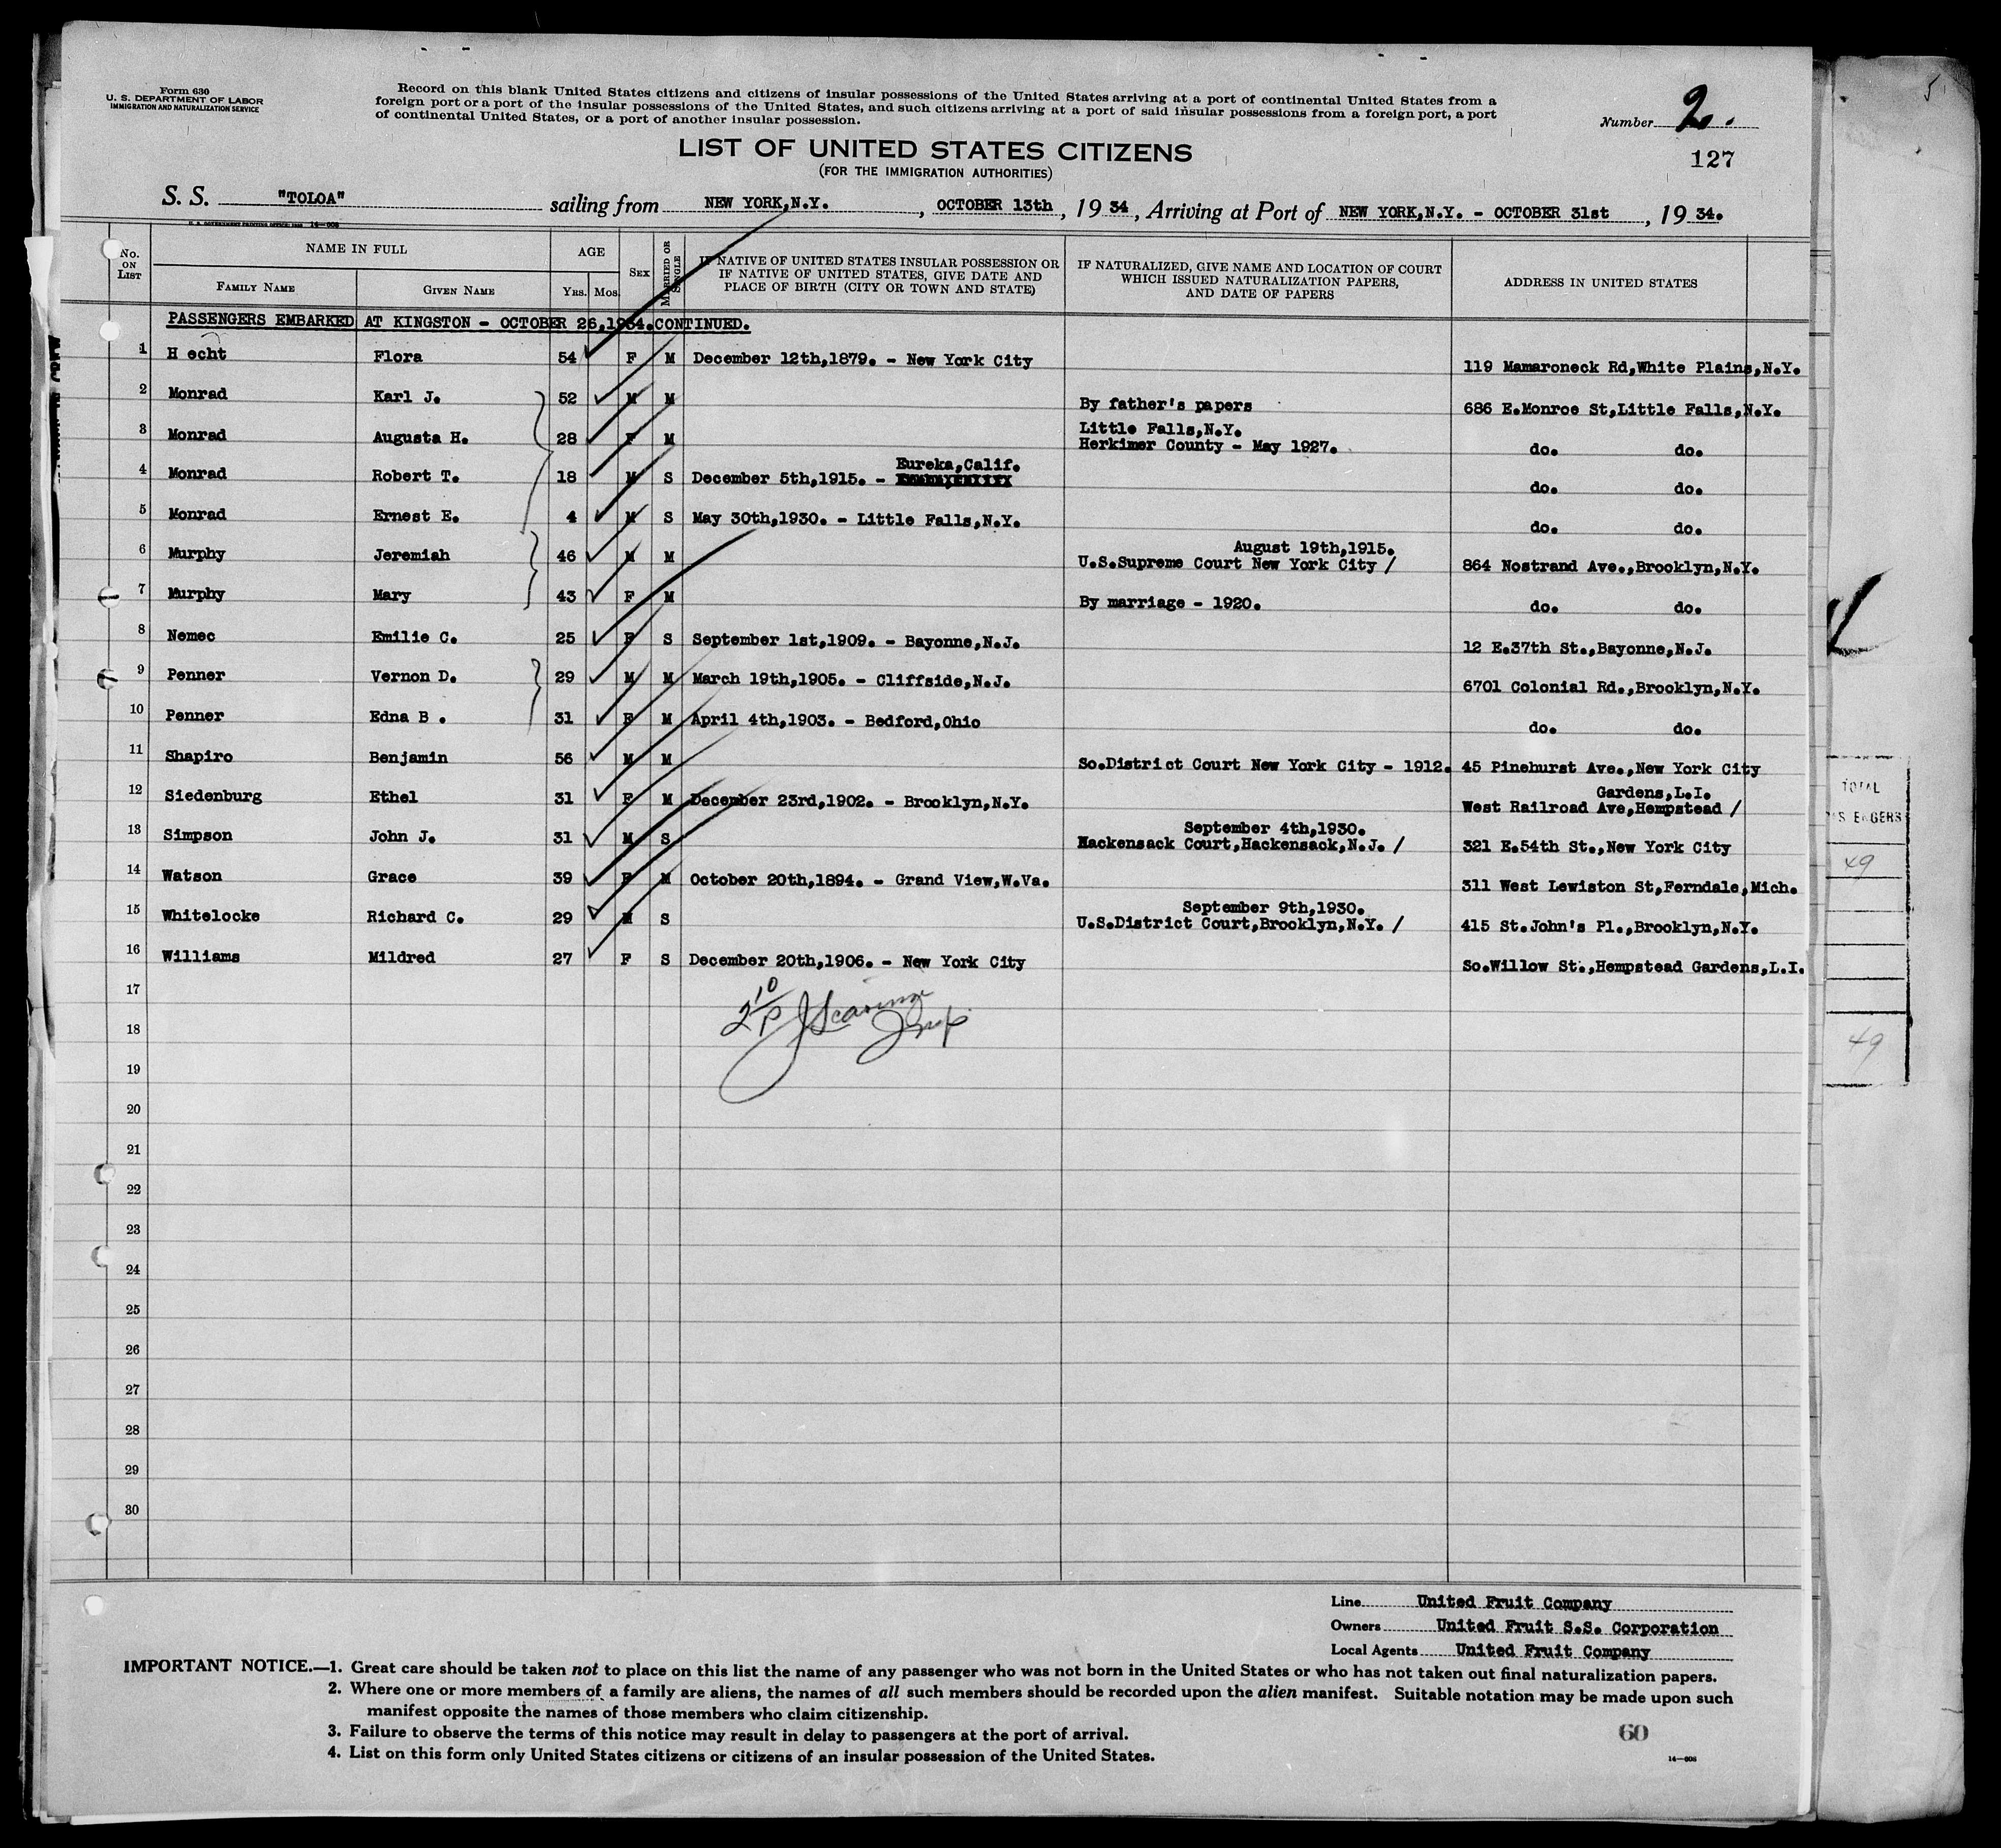 Form 630
U. S. DEPARTMENT OF LABOR
IMMIGRATION AND NATURALIZATION SERVICE
Record on this blank United States citizens and citizens of insular possessions of the United States arriving at a port of continental United States from a
foreign port or a port of the insular possessions of the United States, and such citizens arriving at a port of said insular possessions from a foreign port, a port
of continental United States, or a port of another insular possession.
Number 2.
127
LIST OF UNITED STATES CITIZENS
(FOR THE IMMIGRATION AUTHORITIES)
S. S. "TOLOA" sailing from NEW YORK,N.Y. , OCTOBER 13th , 19 34 , Arriving at Port of NEW YORK,N.Y. - OCTOBER 31st , 19 34.
No. ON LIST NAME IN FULL FAMILY NAME GIVEN NAME AGE YRS. MOS. SEX MARRIED OR SINGLE IF NATIVE OF UNITED STATES INSULAR POSSESSION OR IF NATIVE OF UNITED STATES, GIVE DATE AND PLACE OF BIRTH (CITY OR TOWN AND STATE) IF NATURALIZED, GIVE NAME AND LOCATION OF COURT WHICH ISSUED NATURALIZATION PAPERS, AND DATE OF PAPERS ADDRESS IN UNITED STATES
PASSENGERS EMBARKED AT KINGSTON - OCTOBER 26,1934.CONTINUED.
1 H echt Flora 54 F M December 12th,1879. - New York City 119 Mamaroneck Rd,White Plains,N.Y.
2 Monrad Karl J. 52 M M By father's papers 686 E.Monroe St,Little Falls,N.Y.
3 Monrad Augusta H. 28 F M Little Falls,N.Y. Herkimer County - May 1927. do. do.
4 Monrad Robert T. 18 M S December 5th,1915. - Eureka,Calif. do. do.
5 Monrad Ernest E. 4 M S May 30th,1930. - Little Falls,N.Y. do. do.
6 Murphy Jeremiah 46 M M August 19th,1915. U.S.Supreme Court New York City / 864 Nostrand Ave.,Brooklyn,N.Y.
7 Murphy Mary 43 F M By marriage - 1920. do. do.
8 Nemec Emilie C. 25 F S September 1st,1909. - Bayonne,N.J. 12 E.37th St.,Bayonne,N.J.
9 Penner Vernon D. 29 M M March 19th,1905. - Cliffside,N.J. 6701 Colonial Rd.,Brooklyn,N.Y.
10 Penner Edna B . 31 F M April 4th,1903. - Bedford,Ohio do. do.
11 Shapiro Benjamin 56 M M So.District Court New York City - 1912. 45 Pinehurst Ave.,New York City
12 Siedenburg Ethel 31 F M December 23rd,1902. - Brooklyn,N.Y. Gardens,L.I. West Railroad Ave,Hempstead /
13 Simpson John J. 31 M S September 4th,1930. Hackensack Court,Hackensack,N.J. / 321 E.54th St.,New York City
14 Watson Grace 39 F M October 20th,1894. - Grand View,W.Va. 311 West Lewiston St,Ferndale,Mich.
15 Whitelocke Richard C. 29 M S September 9th,1930. U.S.District Court,Brooklyn,N.Y. / 415 St.John's Pl.,Brooklyn,N.Y.
16 Williams Mildred 27 F S December 20th,1906. - New York City So.Willow St.,Hempstead Gardens,L.I.
17
18
19
20
21
22
23
24
25
26
27
28
29
30
TOTAL
49
49
Line United Fruit Company
Owners United Fruit S.S. Corporation
Local Agents United Fruit Company
IMPORTANT NOTICE.—1. Great care should be taken not to place on this list the name of any passenger who was not born in the United States or who has not taken out final naturalization papers.
2. Where one or more members of a family are aliens, the names of all such members should be recorded upon the alien manifest. Suitable notation may be made upon such
manifest opposite the names of those members who claim citizenship.
3. Failure to observe the terms of this notice may result in delay to passengers at the port of arrival.
4. List on this form only United States citizens or citizens of an insular possession of the United States.
60
14—608